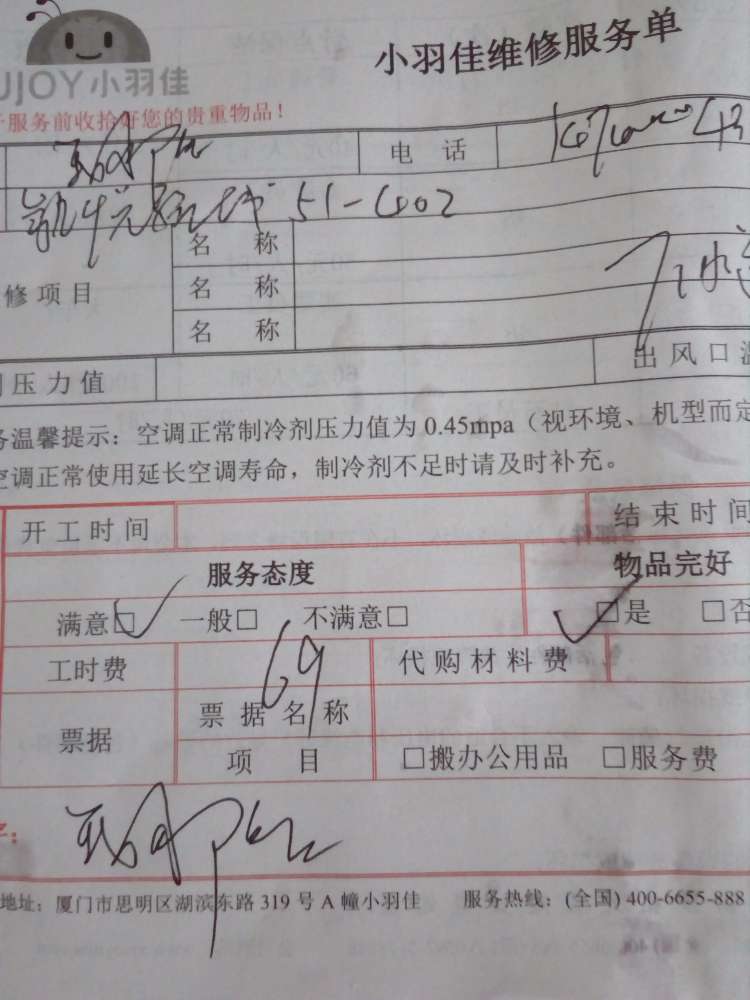 UJOY小羽佳
小羽佳维修服务单
服务前收拾好您的贵重物品！
电 话
51-402
名 称
修项目 名 称
名 称
压力值 出风口温
务温馨提示：空调正常制冷剂压力值为 0.45mpa（视环境、机型而定
空调正常使用延长空调寿命，制冷剂不足时请及时补充。
开工时间 结束时间
服务态度 物品完好
满意□ 一般□ 不满意□ □是 □否
工时费 69 代购材料费
票据 票据名称
项 目 □搬办公用品 □服务费
地址：厦门市思明区湖滨东路 319 号 A 幢小羽佳 服务热线：(全国) 400-6655-888